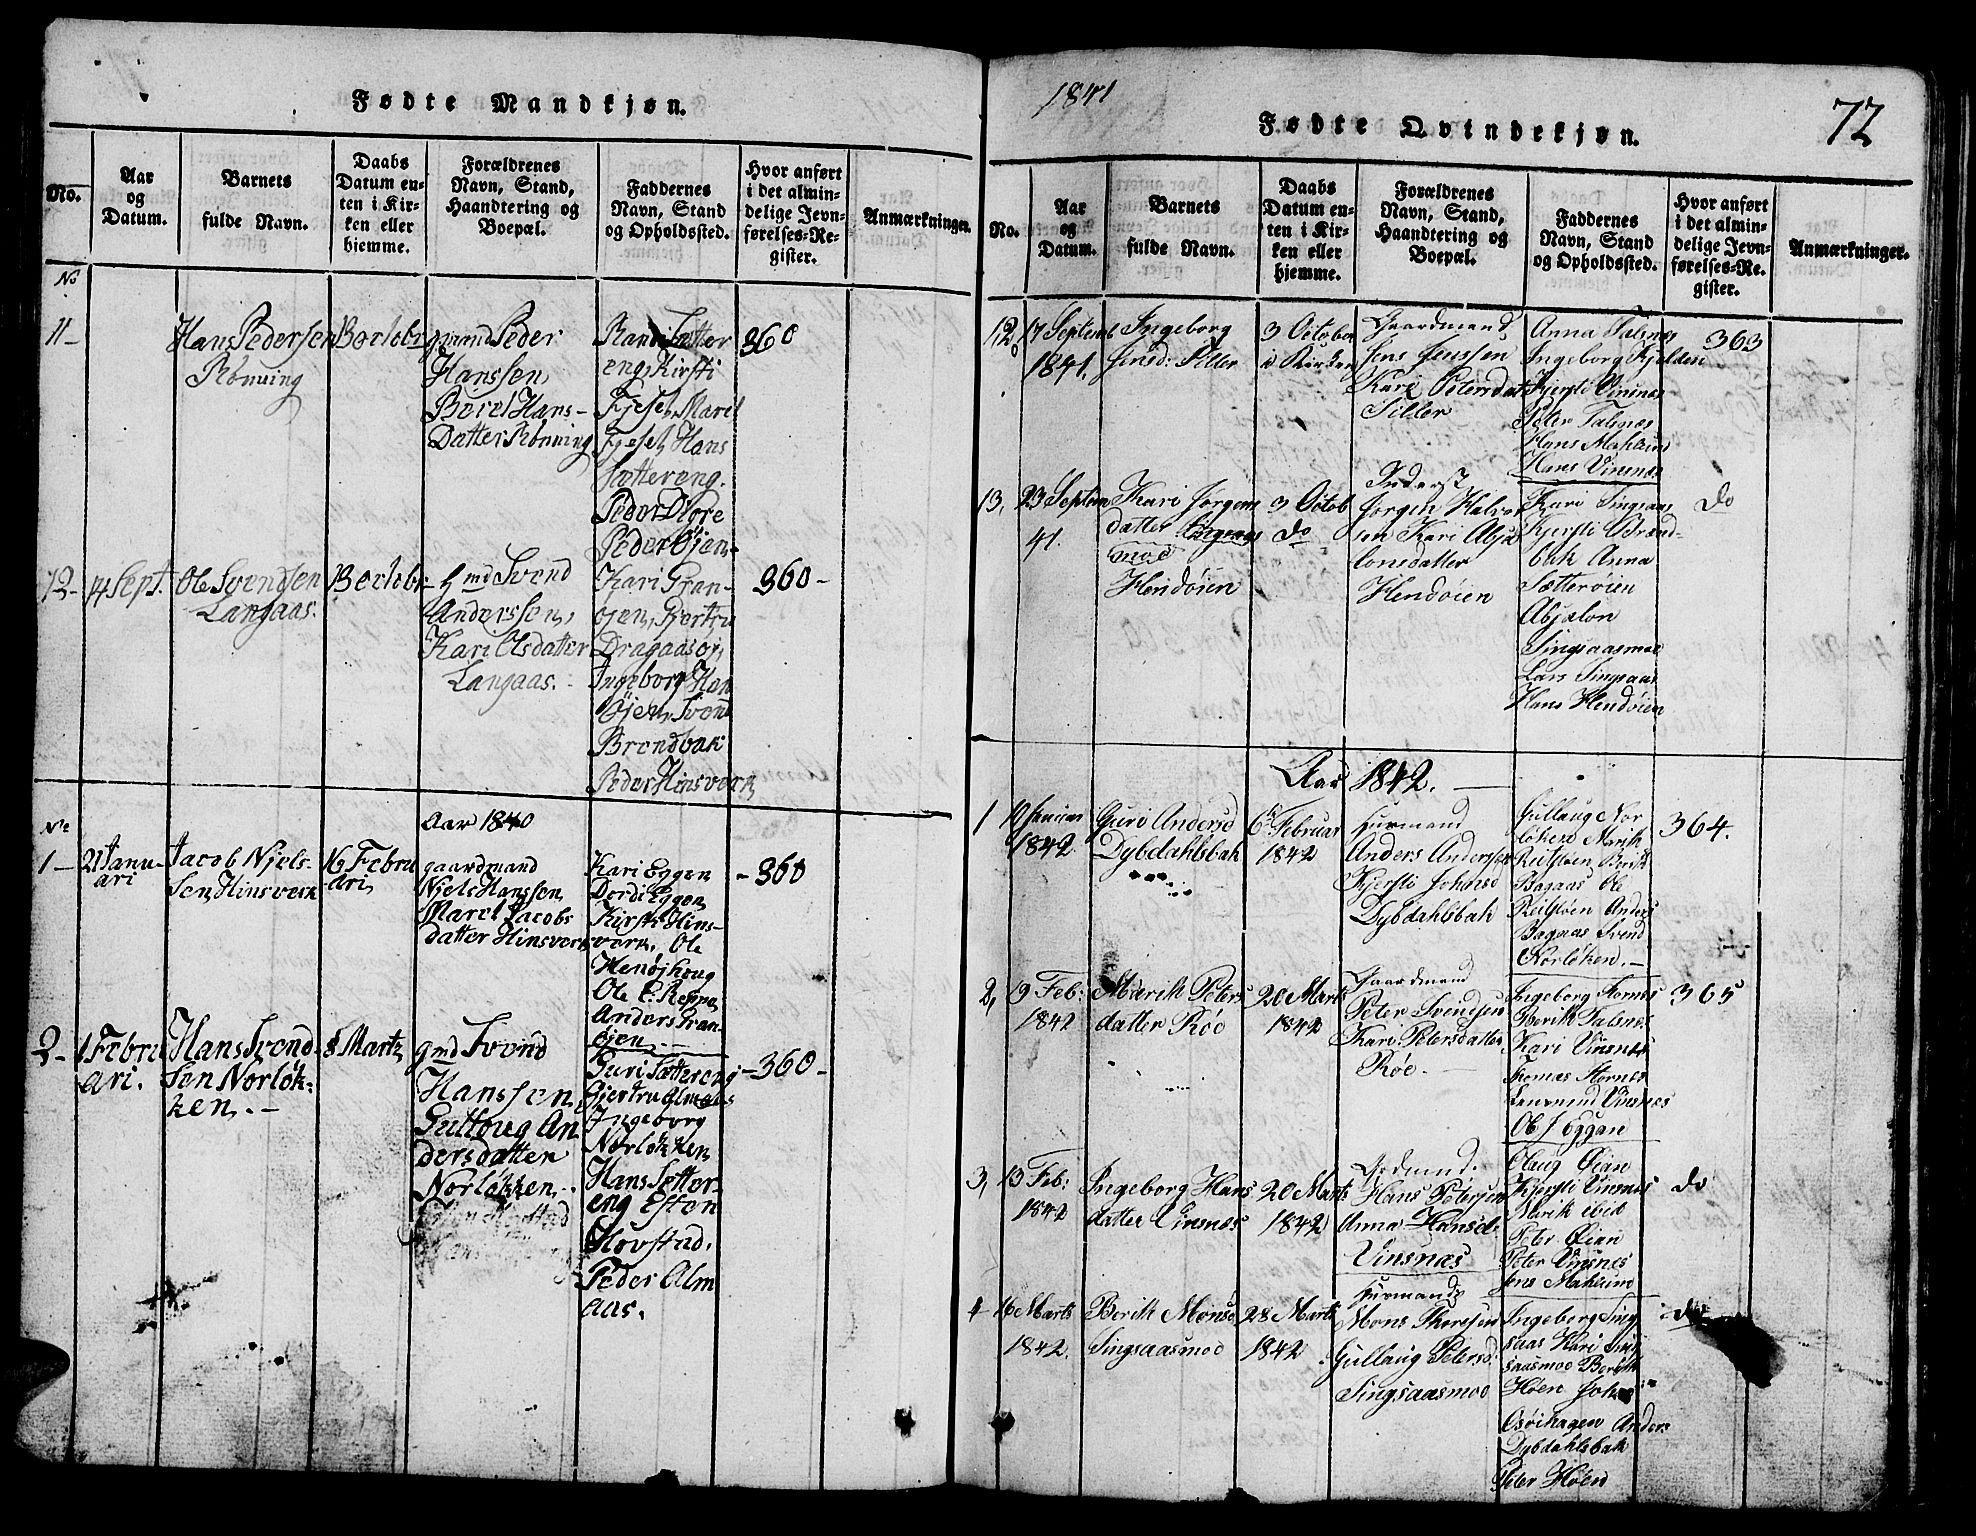 Fødte Mandkjøn.
No.
Aar
og
Datum.
Barnets
fulde Navn.
Daabs
Datum en-
ten i Kir-
ken eller
hjemme.
Forældrenes
Navn, Stand,
Haandtering og
Boepæl.
Faddernes
Navn, Stand
og Opholdssted.
Hvor anført
i det almin-
delige Jevn-
førelses-Re-
gister.
Anmærkninger.
No
11-
Hans Pedersen
Rønning
gmand Peder
Hanssen,
Berel Hans-
Datter Rønning
Randi Sætter
eng, Kirsti
Fjeset, Marel
Fjeset, Hans
Sættereng.
Peder
Peder Øjen-
360
12-
14 Sept.
Ole Svendsen
Langaas.
Gmd Svend
Anderssen,
Kari Olsdatter
Langaas.
Kari Gran-
øjen, Gjertru
Dragaasøj,
Ingeborg Hen
øjen, Svend
Brendbak
Peder Hinsverk
360-
Aar 1840
No
1-
21 Janu-
ari
Jacob Njels-
sen Hinsverk
16 Febru
ari
gaardmand
Njels Hanssen
Marel Jacobs
datter Hinsverk
Kari Eggen
Dordi Eggen
Kirsti Hins-
verk, Ole
Henøjhoug
Ole E. Reppe
Anders Gran-
øjen.
-360
2-
1 Febru
ari.
Hans Svend
sen Norløk-
ken.-
8 Martz
gmd Svend
Hanssen
Gulloug An
dersdatter
Norløkken.
Guri Sættereng
Gjertru Almaas
Ingeborg
Norløkken
Hans Sætter-
eng Esten
Hovstad.
Peder Alm
aas.
-360-
1841
Fødte Qvindekjøn.
72
No.
Aar
og
Datum.
Barnets
fulde Navn.
Daabs
Datum en-
ten i Kir-
ken eller
hjemme.
Forældrenes
Navn, Stand,
Haandtering og
Boepæl.
Faddernes
Navn, Stand
og Opholdssted.
Hvor anført
i det almin-
delige Jevn-
førelses-Re-
gister.
Anmærkninger.
12
17 Septemb
1841.
Ingeborg
Jensd: Siller
3 October
i Kirken
Gaardmand
Jens Jenssen
Kari Petersdat
Siller
Anna Talsnes
Ingeborg Kjelden
Kjersti Vinsnes
Peter Talsnes
Hans
Hans Vinsnes
363
13,
23 Septem
41.
Kari Jørgens
datter
moe
Hendøien
3 Octob
do
Inderst
Jørgen Halvor
sen Kari Absa
lonsdatter
Hendøien
Kari Singsaas
Kjersti Brænd-
bak Anna
Sætterøien
Absalon
Singsaasmoe
Lars Singsaas
Hans Hendøien
do
Aar 1842.
1
10 Januar
1842.
Guri Andersd
Dybdahlsbak
6 Februar
1842
Huusmand
Anders Andersen
Kjersti Johnsd
Dybdahlsbak
Gullaug Nor
løken Marit
Berit
Bagaas Ole
Anders
Bagaas Svend
Norløken.-
364.
2,
19 Feb:
1842
Marit Peters
datter Røe
20 Marts
1842
Gaardmand
Peter Svendsen
Kari Petersdatter
Røe.-
Ingeborg Fornes
Berit Talsnes
Kari Vinsnes
Tomas Fornes
Vinsnes
Ole J Eggan
365
3,
13 Feb:
1842
Ingeborg Hans
datter Vinsnes
20 Marts
1842
Hans Petersen
Anna Hansd
Vinsnæs
Olaug Øian
Kjersti Vinsnes
Marit ibid
Peter Øian
Peter Vinsnes
Jens
do
4
16 Marts
1842.
Berit Monsd
Singsaasmoe
28 Marts
1842
Huusmand
Mons Thoresen
Gullaug Petersd
Singsaasmoe
Ingeborg Sing
saas Kari Sing
saasmoe Berit
Høen Johs
Anders
Dybdahlsbak
Peter Høen
do